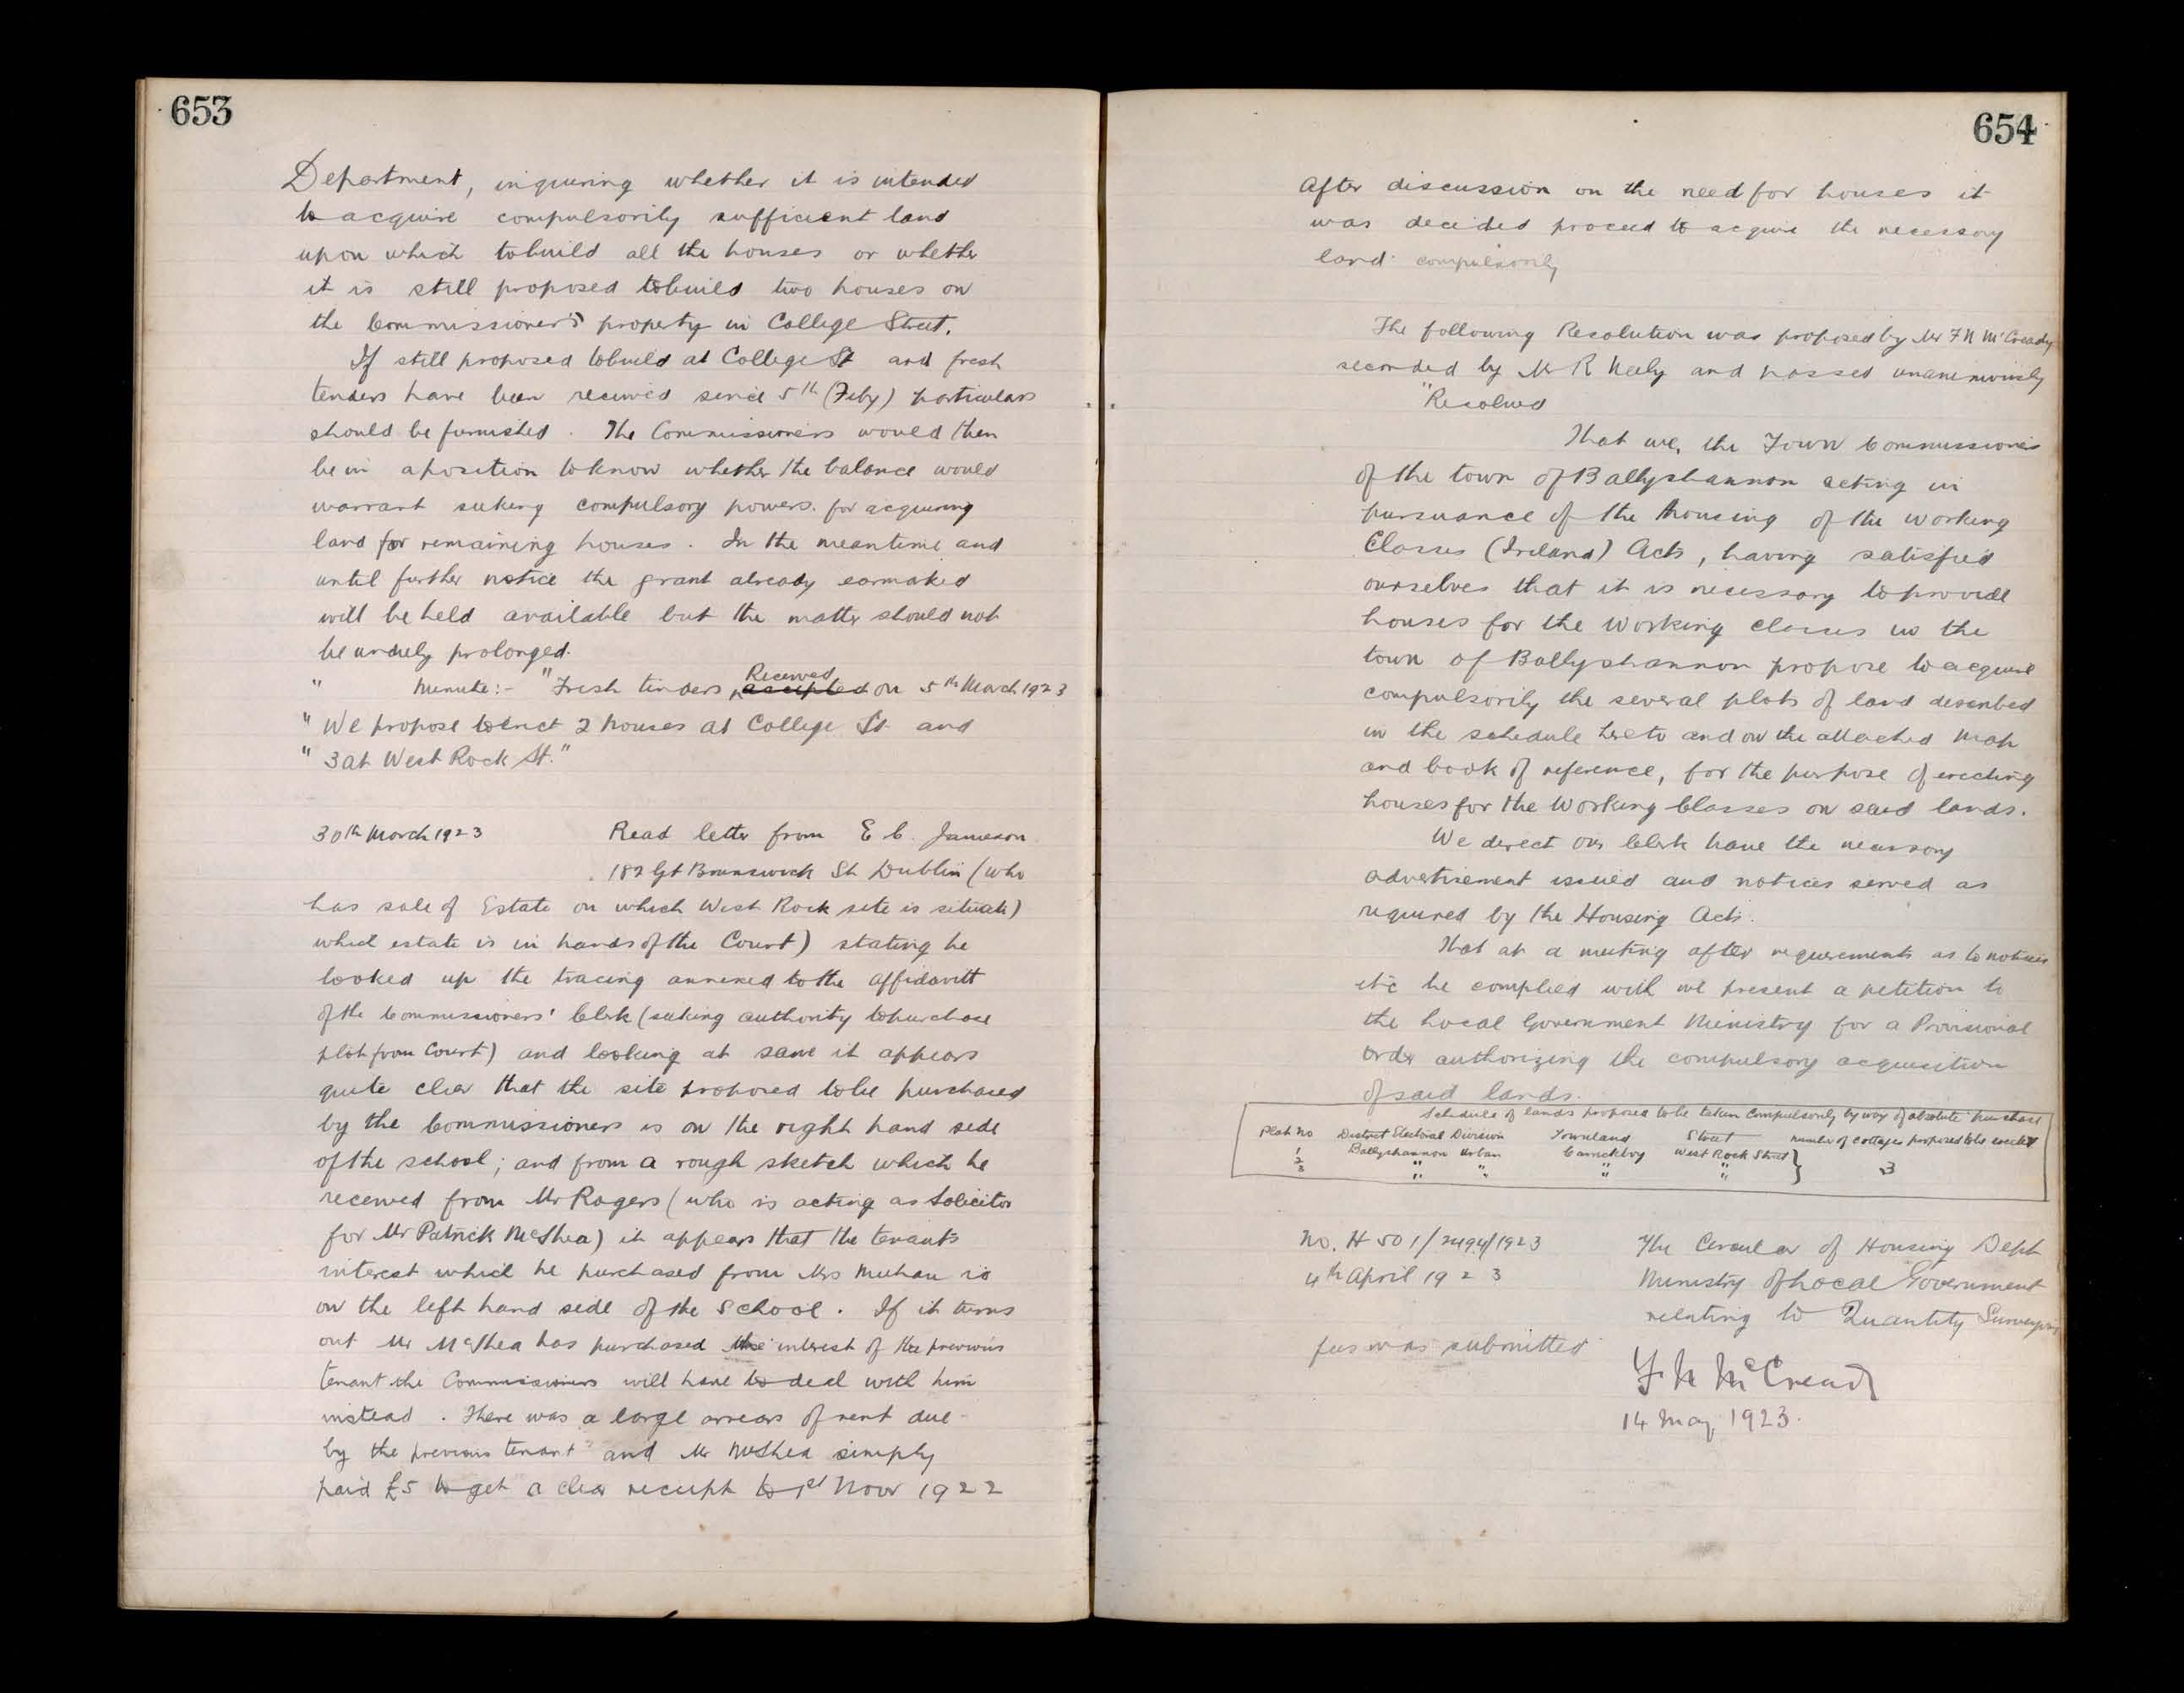 653
Department, inquiring whether it is intended
to acquire compulsorily sufficient land
upon which to build all the houses or whether
it is still proposed to build two houses on
the Commissioner's property in College Street.
If still proposed to build at College St and fresh
tenders have been received since 5th (Feby) particulars
should be furnished. The Commissioners would then
be in a position to know whether the balance would
warrant seeking compulsory powers for acquiring
land for remaining houses. In the meantime and
until further notice the grant already earmaked
will be held available but the matter should not
be unduly prolonged.
" Minute:- "Fresh tenders accepted Received on 5th March 1923
" We propose to erect 2 houses at College St and
" 3 at West Rock St."
30th March 1923 Read letter from E C. Jameson
182 Gt Brunswick St Dublin (who
has sale of Estate on which West Rock site is situate)
which estate is in hands of the Court) stating he
looked up the tracing annexed to the affidavitt
of the Commissioners' Clerk (seeking authority to purchase
plot from Court) and looking at same it appears
quite clear that the site proposed to be purchased
by the Commissioners is on the right hand side
of the school; and from a rough sketch which he
received from Mr Rogers (who is acting as Solicitor
for Mr Patrick McShea) it appears that the tenants
interest which he purchased from Mrs Meehan is
on the left hand side of the School. If it turns
out Mr McShea has purchased the interest of the previous
tenant the Commissioners will have to deal with him
instead. There was a large arrears of rent due
by the previous tenant and Mr McShea simply
paid £5 to get a clear receipt to 1st Novr 1922
654
After discussion on the need for houses it
was decided proceed to acquire the necessary
land compulsorily
The following Resolution was proposed by Mr F N McCready
seconded by Mr R Neely and passed unanimously
"Resolved
That we, the Town Commissioners
of the town of Ballyshannon acting in
pursuance of the Housing of the Working
Classes (Ireland) Acts, having satisfied
ourselves that it is necessary to provide
houses for the Working classes in the
town of Ballyshannon propose to acquire
compulsorily the several plots of land described
in the schedule hereto and on the attached map
and book of reference, for the purpose of erecting
houses for the Working Classes on said lands.
We direct our Clerk have the necessary
advertisement issued and notices served as
required by the Housing Acts.
That at a meeting after requirements as to notices
etc be complied with we present a petition to
the Local Government Ministry for a Provisional
order authorizing the compulsory acquisition
of said lands.
Schedule of lands proposed to be taken Compulsorily by way of absolute purchase
Plot No District Electoral Division Townland Street number of cottages proposed to be erected
1 Ballyshannon Urban Carrickboy West Rock Street
2 " " " " } 3
3 " " " "
No. H 501/2494/1923 The Circular of Housing Dept
4th April 1923 Ministry of Local Government
relating to Quantity Surveyors
fees was submitted
F. N McCready
14 May 1923.